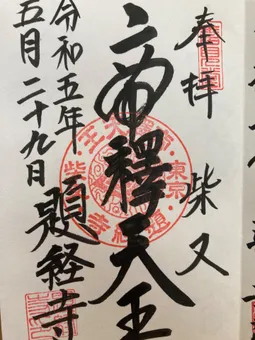 奉拝 柴又
帝釋天王
令和五年
五月二十九日
題経寺